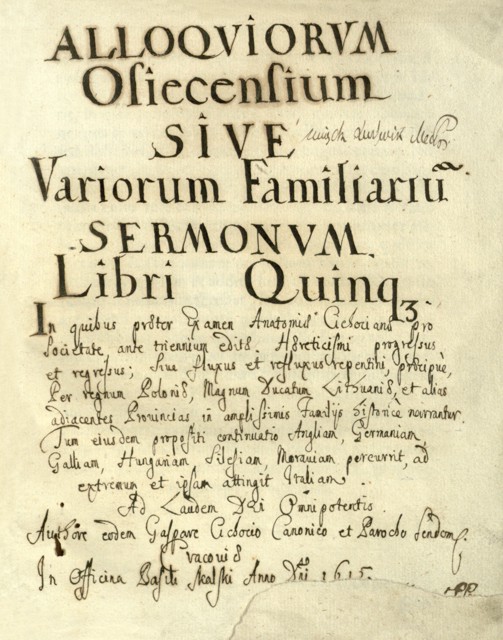 ALLOQVIORVM
Osiecensium
SIVE
Variorum Familiariũ
SERMONVM.
Libri Quinqꝫ.
In quibus præter Examen Anatomiæ Cichocianæ pro
Societate, ante triennium editæ. Hæreticismi progressus
et regressus; sive fluxus et refluxus repentini, præcipuè,
Per regnum Poloniæ, Magnum Ducatum Lithuaniæ, et alias
adiacentes Provincias in amplissimis Familijs historicè narrantur.
Tum eiusdem propositi continuatio Angliam, Germaniam,
Galliam, Hungariam, Silesiam, Moraviam percurrit, ad
extremum et ipsam attingit Italiam.
Ad Laudem DEI Omnipotentis.
Authore eodem Gaspare Cichocio Canonico et Parocho Sendom
In Officina Basilÿ Skalski Anno Dñi 1615.